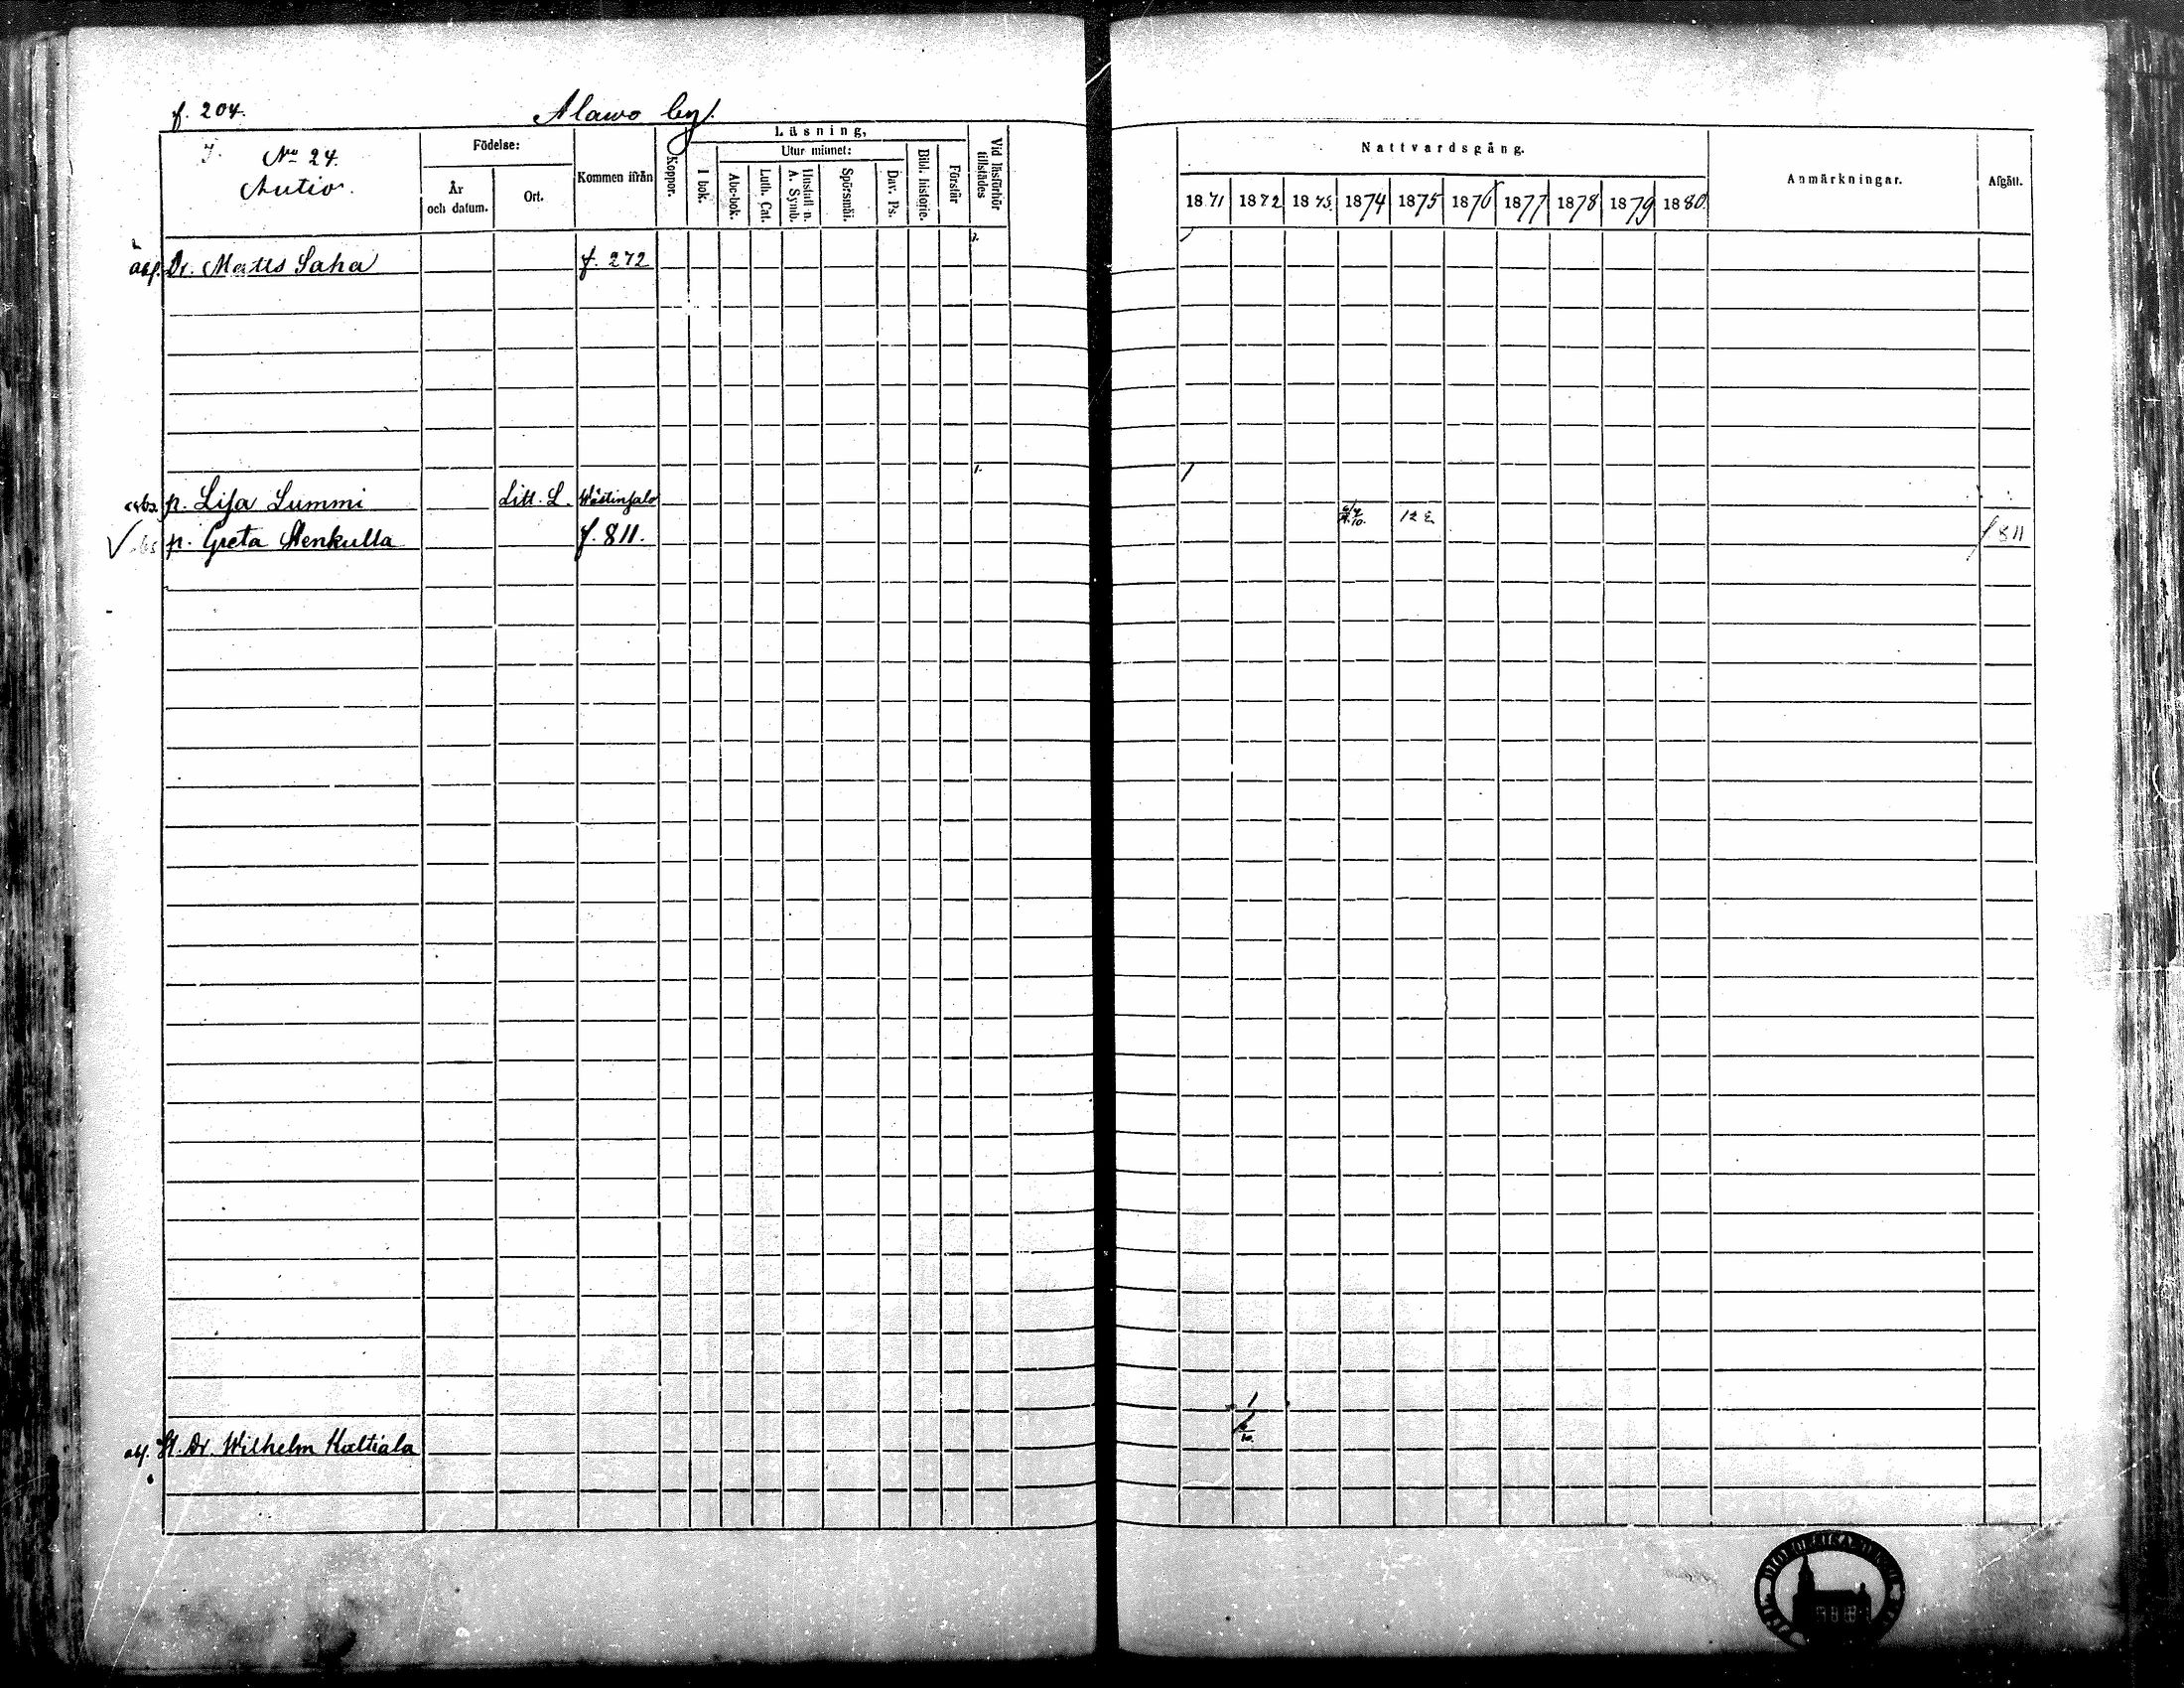 f. 204.
Alawo by.
No 24.
Autio.
Födelse:
År
och datum.
Ort.
Kommen ifrån
Koppor.
Läsning,
I bok.
Utur minnet:
Abc-bok.
Luth. Cat.
Hustafl. n.
A. Symb.
Spörsmål.
Dav. Ps.
Bibl. historie.
Förstår
Vid läsförhör
tillstädes
Nattvardsgång.
1871 1872 1873. 1874 1875 1876 1877 1878 1879 1880.
Anmärkningar.
Afgått.
Dr. Matts Saha f. 272
abs. p. Lisa Lummi Litt. L.
p. Greta Stenkulla f. 811. f 811
St. Dr. Wilhelm Kaltiala